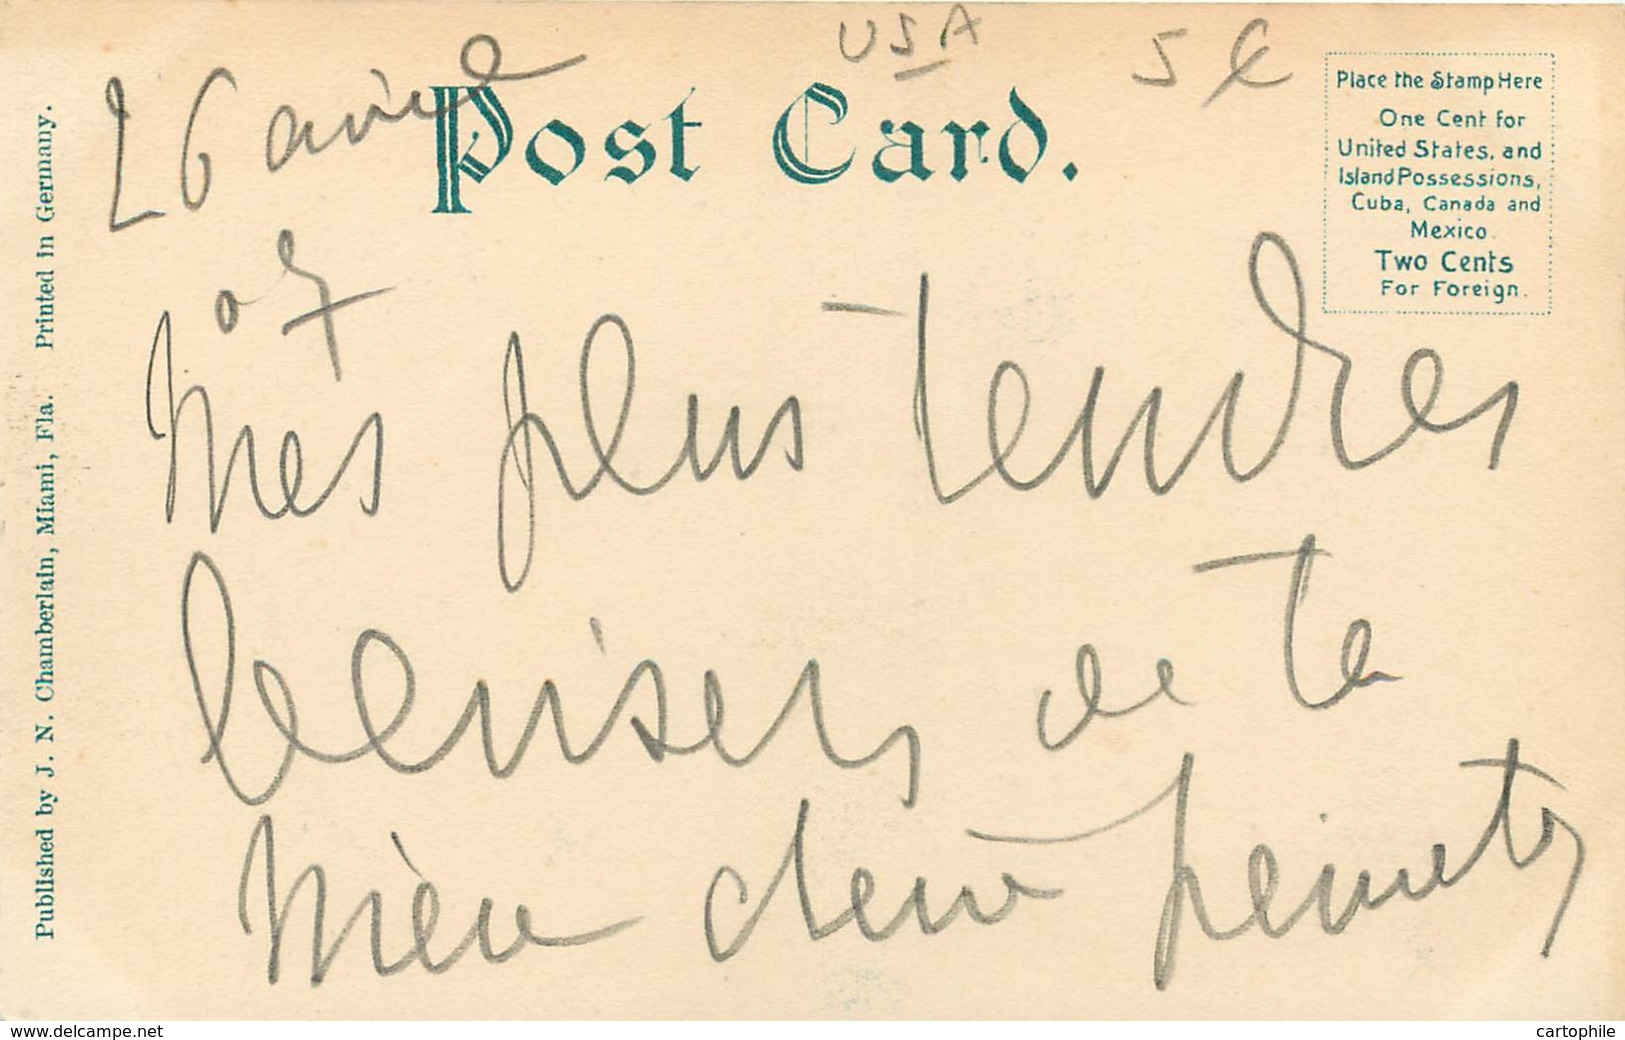 USA
5 €
26 avril
07
Post Card.
Place the Stamp Here
One Cent for
United States, and
Island Possessions,
Cuba, Canada and
Mexico.
Two Cents
For Foreign.
Published by J. N. Chamberlain, Miami, Fla. Printed in Germany.
Mes plus tendres
baisers de ta
mère chérie
www.delcampe.net
cartophile